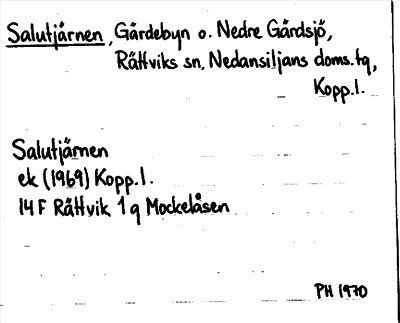 Salutjärnen, Gärdebyn o. Nedre Gärdsjö,
Rättviks sn, Nedansiljans doms.tq,
Kopp.l.
Salutjärnen
ek (1969) Kopp.l.
14 F Rättvik 1 q Mockelåsen
PH 1970